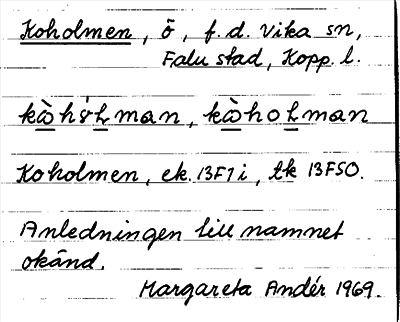 Koholmen, ö, f.d. Vika sn,
Falu stad, Kopp. l.
kòhólman, kòholman
Koholmen, ek. 13F7i, tk 13F50.
Anledningen till namnet
okänd.
Margareta Andér 1969.